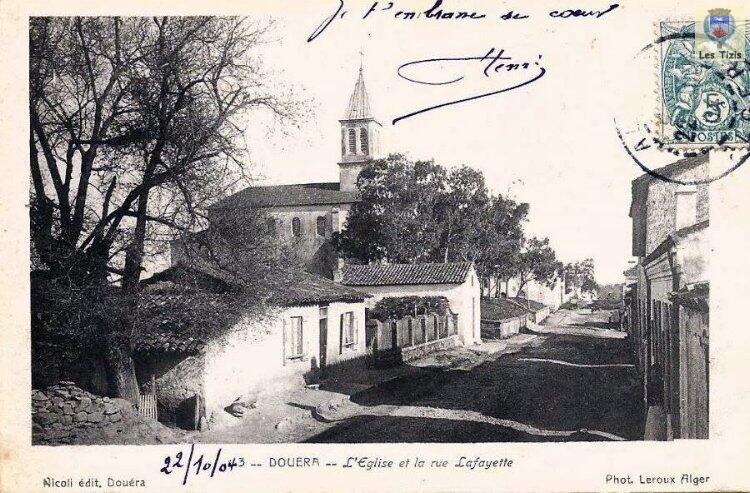 Je t'embrasse de coeur
Henri
Les Tizis
5
POSTES
22/10/04
3 -- DOUERA -- L'Eglise et la rue Lafayette
Nicoli édit. Douéra
Phot. Leroux Alger